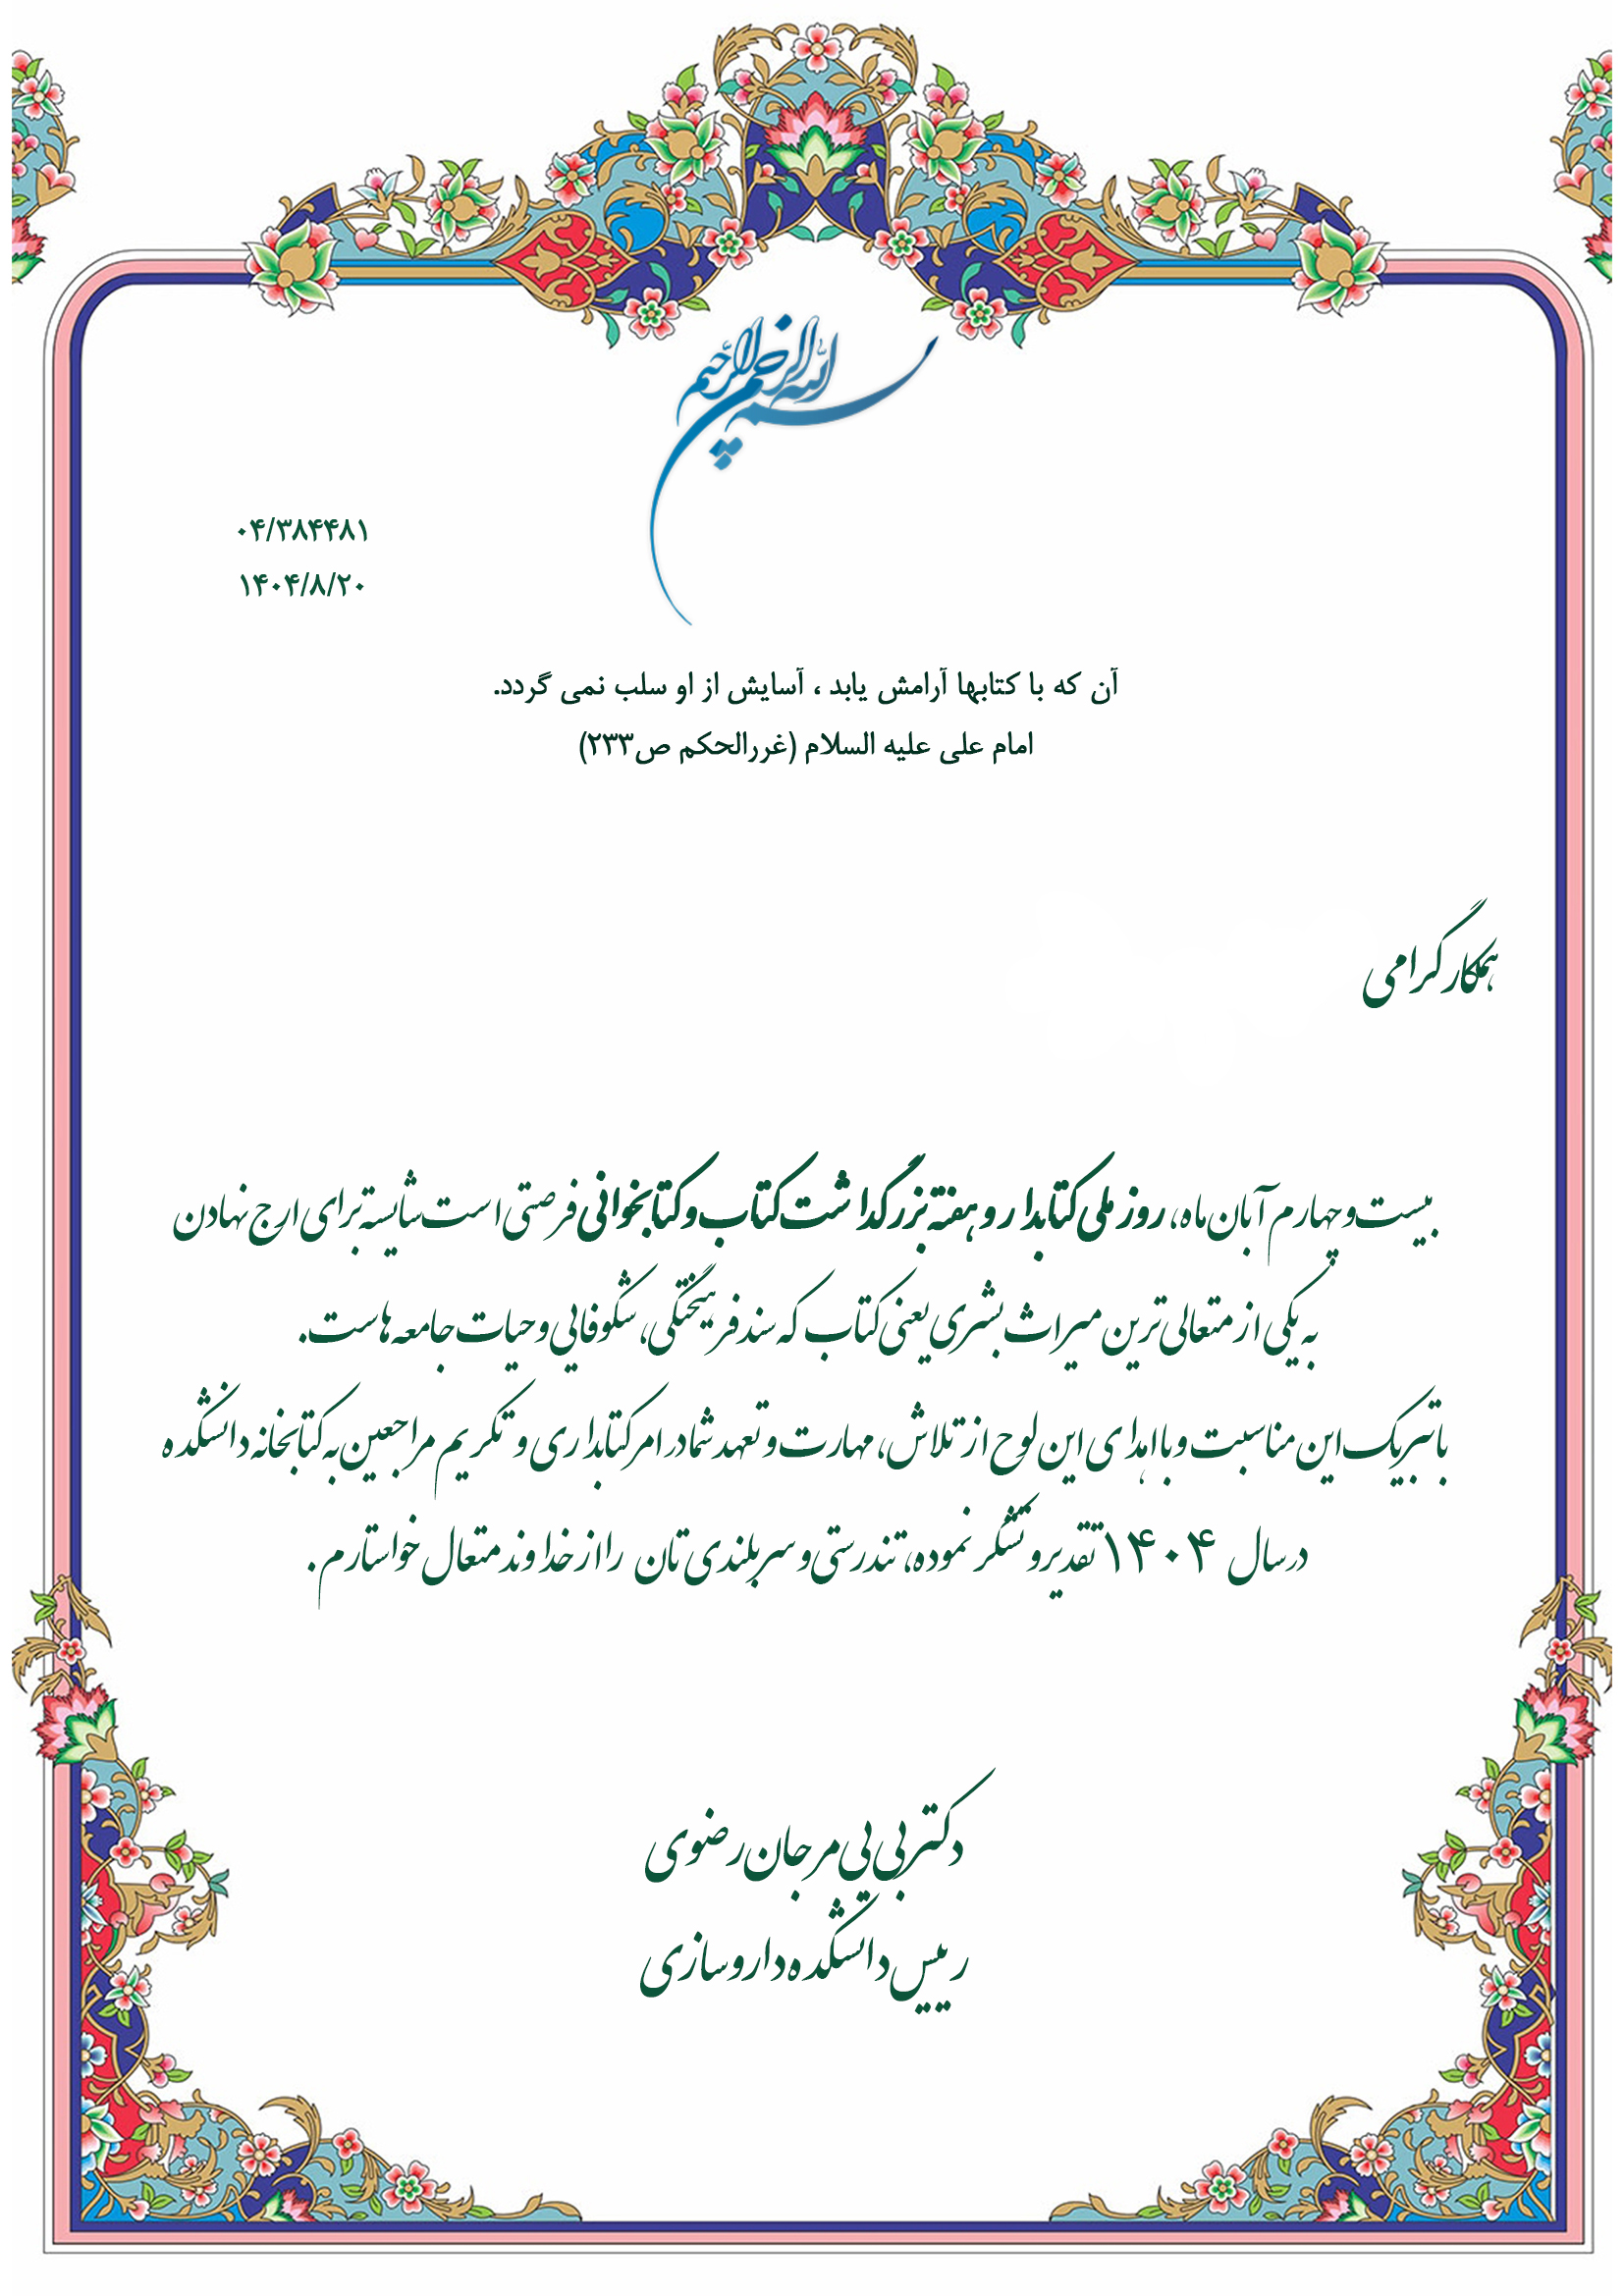 بسم الله الرحمن الرحیم
۰۴/۳۸۴۴۸۱
۱۴۰۴/۸/۲۰
آن که با کتابها آرامش یابد ، آسایش از او سلب نمی گردد.
امام علی علیه السلام (غررالحکم ص۲۳۳)
همکار گرامی
بیست و چهارم آبان ماه، روز ملی کتابدار و هفته بزرگداشت کتاب و کتابخوانی فرصتی است شایسته برای ارج نهادن
به یکی از متعالی ترین میراث بشری یعنی کتاب که سند فرهیختگی، شکوفایی و حیات جامعه هاست.
با تبریک این مناسبت و با اهدای این لوح از تلاش، مهارت و تعهد شما در امر کتابداری و تکریم مراجعین به کتابخانه دانشکده
در سال ۱۴۰۴ تقدیر و تشکر نموده، تندرستی و سربلندی تان را از خداوند متعال خواستارم .
دکتر بی بی مرجان رضوی
رییس دانشکده داروسازی